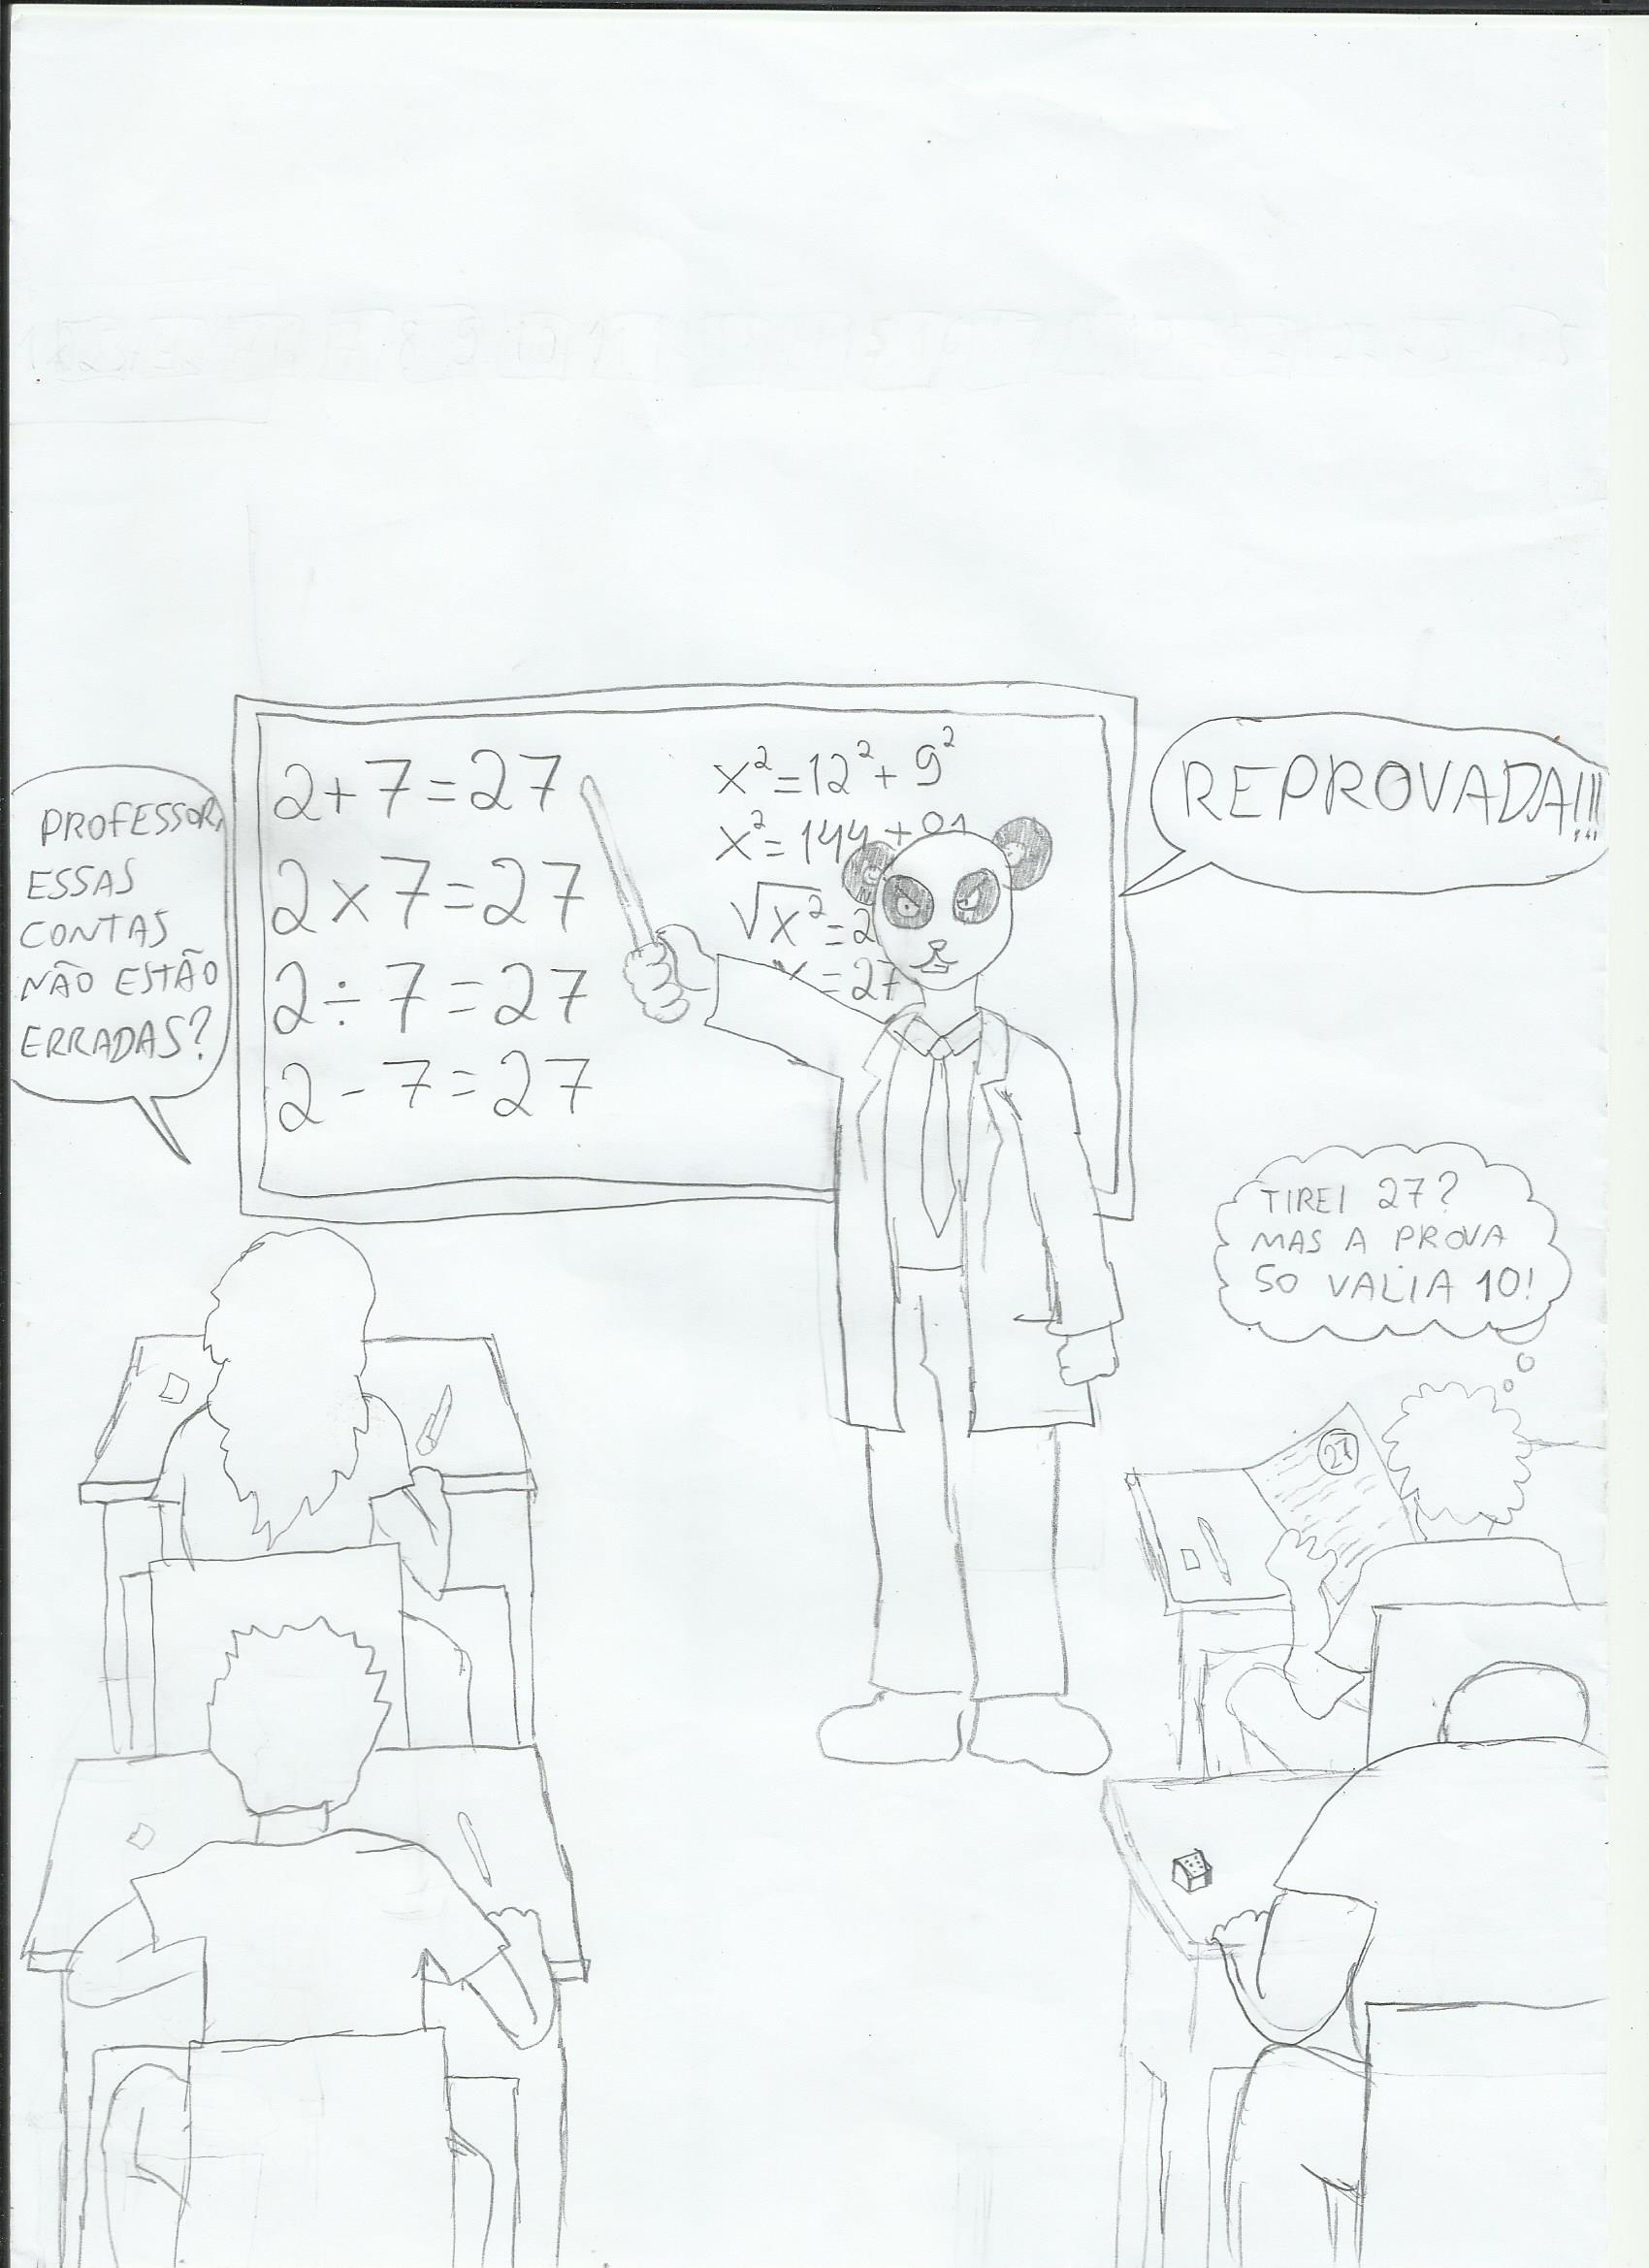 PROFESSOR,
ESSAS
CONTAS
NÃO ESTÃO
ERRADAS?
2+7=27
2×7=27
2÷7=27
2-7=27
x²=12²+9²
x²=144+81
√x²=2
x=27
REPROVADA!!!
TIREI 27?
MAS A PROVA
SO VALIA 10!
27